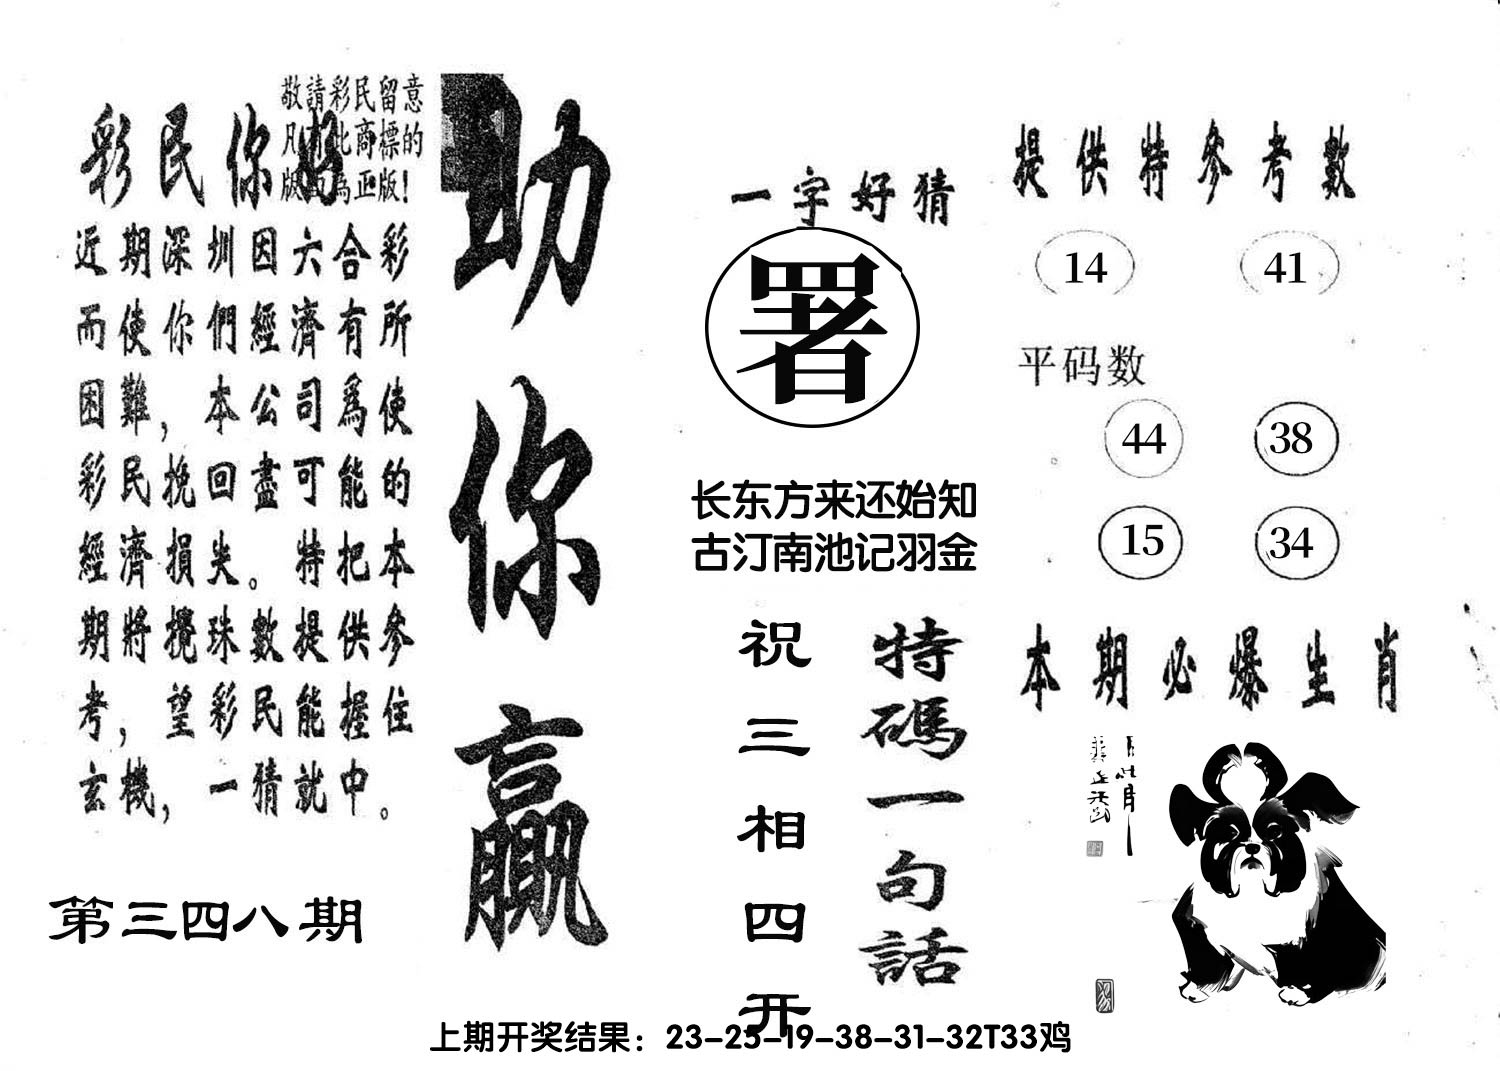 敬請彩民留意
凡有此商標的
版面為正版!
彩民你好
近期深圳因六合彩
而使你們經濟有所
困難，本公司爲使
彩民挽回盡可能的
經濟損失。特把本
期將攪珠數提供參
考，望彩民能握住
玄機，一猜就中。
第三四八期
助你赢
一字好猜
署
长东方来还始知
古汀南池记羽金
特碼一句話
祝三相四开
提供特参考數
14 41
平码数
44 38
15 34
本期必爆生肖
上期开奖结果：23-25-19-38-31-32T33鸡